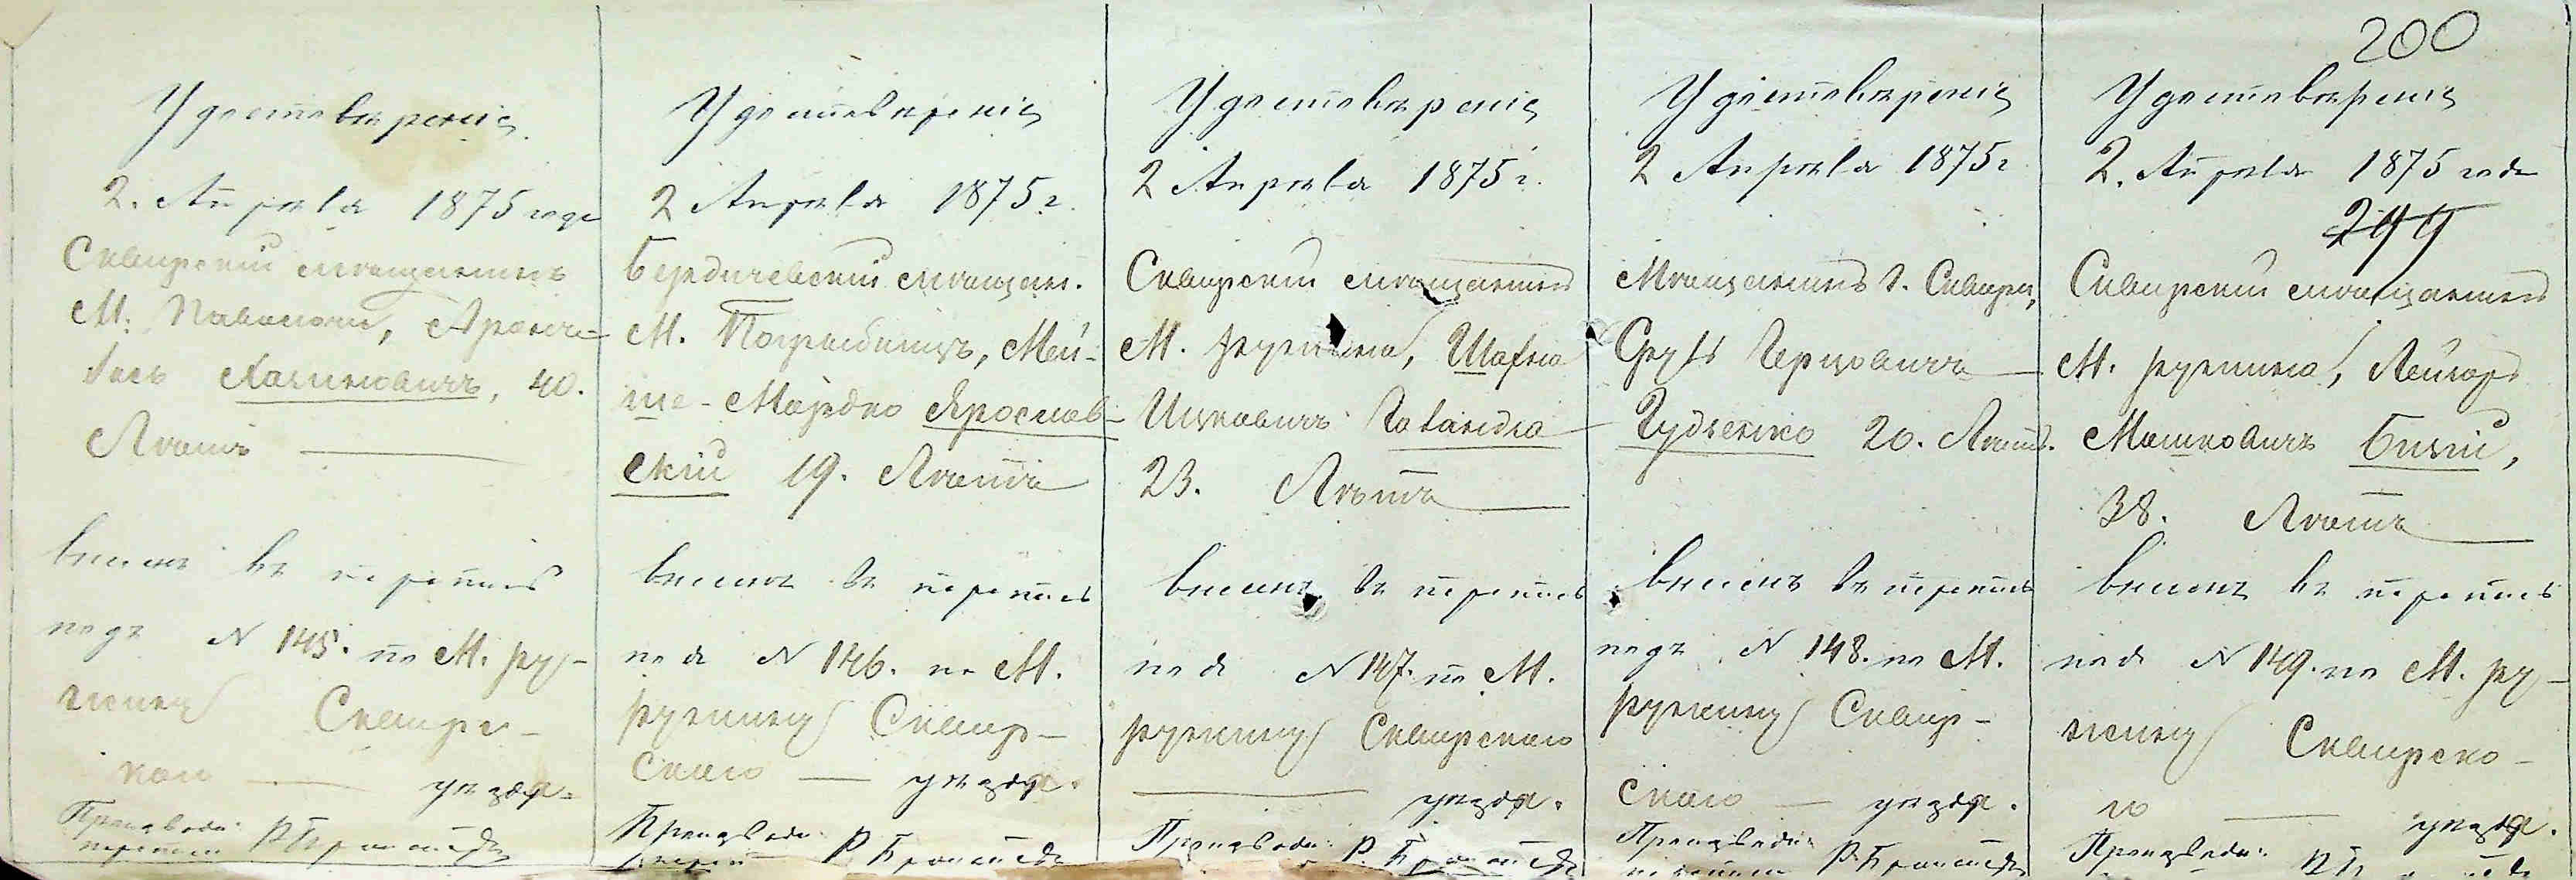 200
Удостовѣреніе
2. Апрѣля 1875 года
Сквирскій мѣщанинъ
М. Паволочи,
Хаимовичъ, 40.
Лѣтъ
внесенъ въ перепись
подъ N 145. по М. Ру-
жину Сквирс-
каго уѣзда.
Производи:
перепись
Удостовѣреніе
2 Апрѣля 1875 г.
Бердичевскій мѣщан.
М. Погребищъ, Мей-
ше-Мордко Ярослав-
скій 19. Лѣтъ
внесенъ въ перепись
подъ N 146. по М.
Ружину Сквир-
скаго уѣзда.
Производи:
переп
Удостовѣреніе
2 Апрѣля 1875 г.
Сквирскій мѣщанинъ
М. Ружина, Шафна
Ицковичъ
23. Лѣтъ
внесенъ въ перепись
подъ N 147. по М.
Ружину Сквирскаго
уѣзда.
Производи:
Удостовѣреніе
2 Апрѣля 1875 г
Мѣщанинъ г. Сквиры,
Срулъ Герцовичъ
Гудзенко 20. Лѣтъ.
внесенъ въ перепись
подъ N 148. по М.
Ружину Сквир-
скаго уѣзда.
Производи:
перепись
Удостовѣреніе
2. Апрѣля 1875 года
299
Сквирскій мѣщанинъ
М. Ружина, Лейзоръ
Мошковичъ Бялый,
38. Лѣтъ
внесенъ въ перепись
подъ N 149. по М. Ру-
жину Сквирска-
го уѣзда.
Производи: